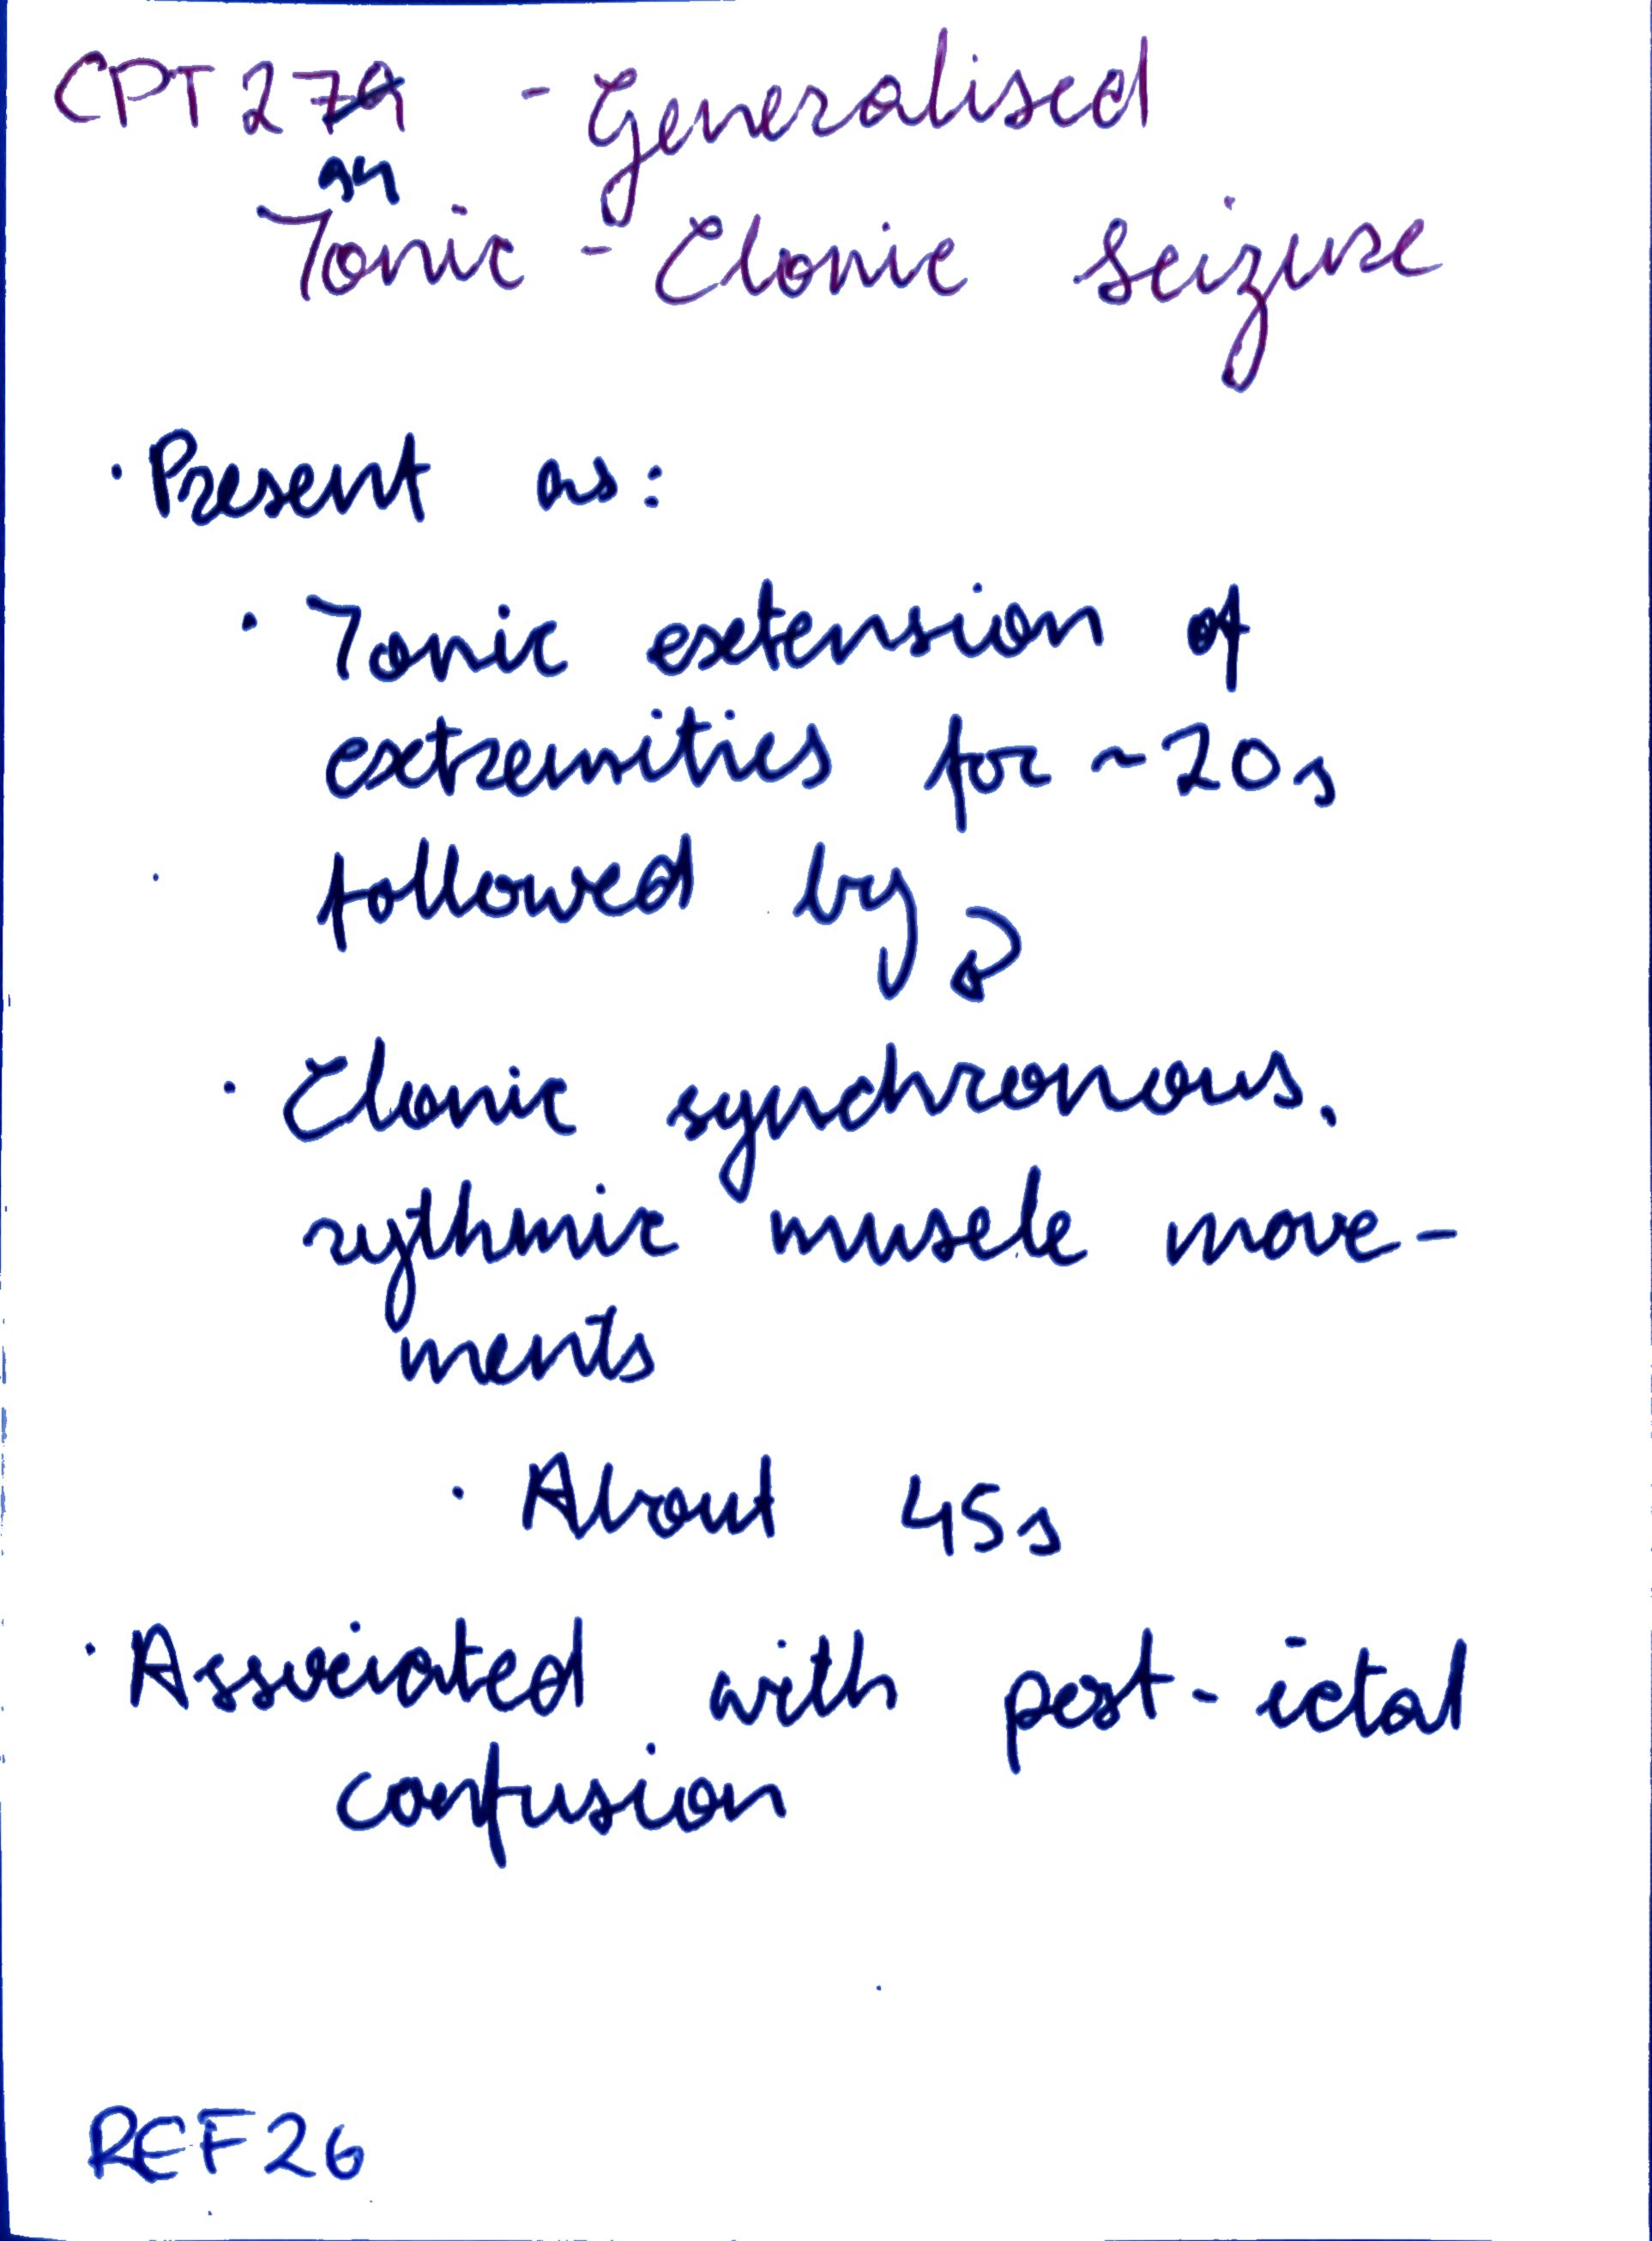 CPT279 - Generalised
94
Tonic - Clonic seizure
· Present as:
· Tonic extension of
extremities for ~20s
followed by
· Clonic synchronous.
rythmic muscle move-
ments
· About 45s
· Associated with post-ictal
confusion
REF26